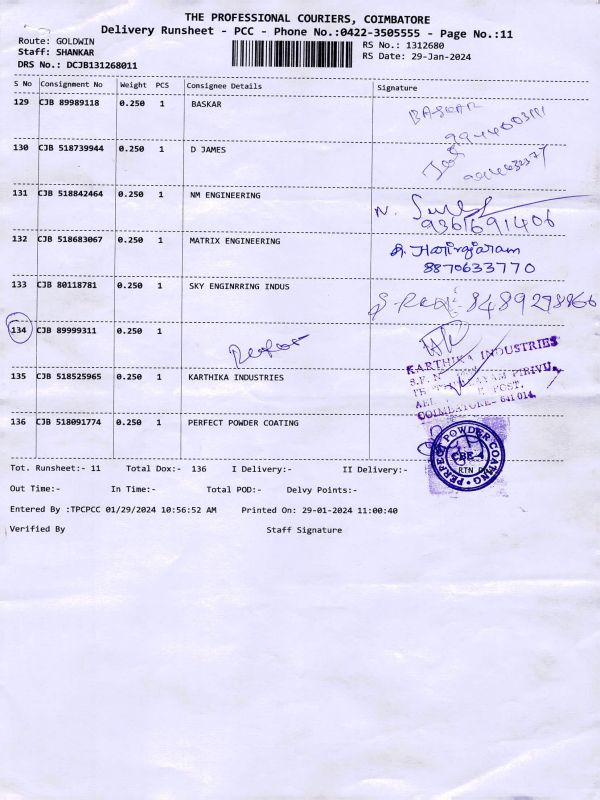 THE PROFESSIONAL COURIERS, COIMBATORE
Delivery Runsheet - PCC - Phone No.:0422-3505555 - Page No.:11
Route: GOLDWIN
RS No.: 1312680
Staff: SHANKAR
RS Date: 29-Jan-2024
DRS No.: DCJB131268011
S No Consignment No Weight PCS Consignee Details Signature
129 CJB 89989118 0.250 1 BASKAR BASKAR
130 CJB 518739944 0.250 1 D JAMES
131 CJB 518842464 0.250 1 NM ENGINEERING N.
9361691406
132 CJB 518683067 0.250 1 MATRIX ENGINEERING
8870633770
133 CJB 80118781 0.250 1 SKY ENGINRRING INDUS
134 CJB 89999311 0.250 1
KARTHIKA INDUSTRIES
PIRIVU,
POST,
COIMBATORE- 641 014.
135 CJB 518525965 0.250 1 KARTHIKA INDUSTRIES
136 CJB 518091774 0.250 1 PERFECT POWDER COATING
PERFECT POWDER COATING
CBE-4
Tot. Runsheet:- 11 Total Dox:- 136 I Delivery:- II Delivery:- RTN
Out Time:- In Time:- Total POD:- Delvy Points:-
Entered By :TPCPCC 01/29/2024 10:56:52 AM Printed On: 29-01-2024 11:00:40
Verified By Staff Signature